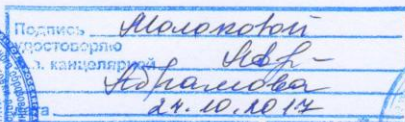 Подпись Молоковой
удостоверяю
в. канцелярией
Абрамова
дата 24.10.2017